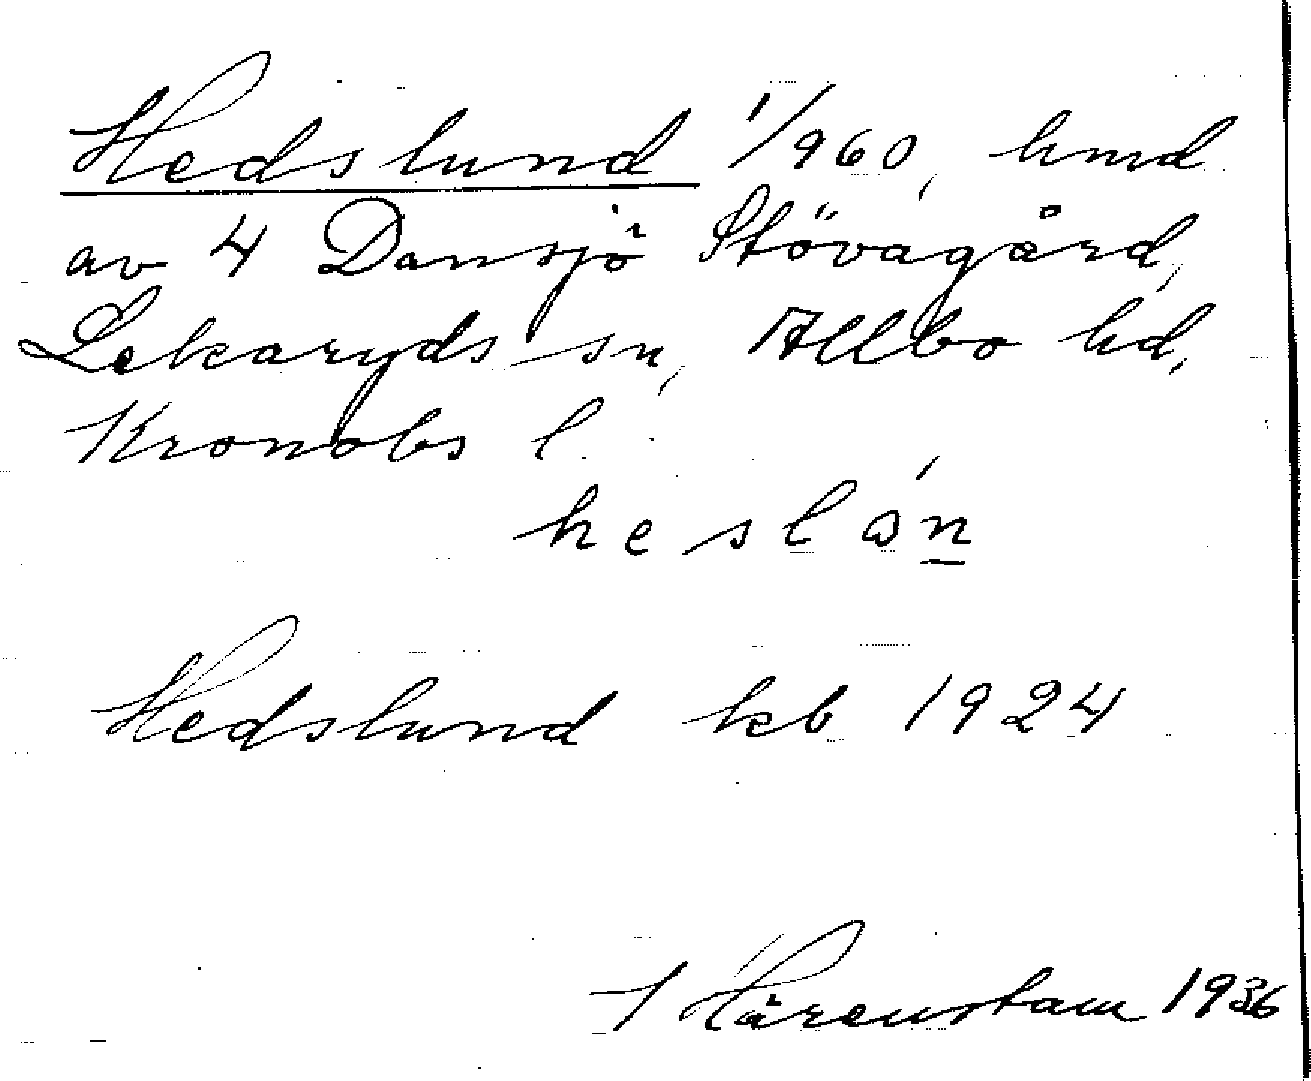 Hedslund 1/960, hmd
av 4 Dansjö Stövagård,
Lekaryds sn, Allbo hd,
Kronobs l.
heslán
Hedslund kb 1924
I Härenstam 1936